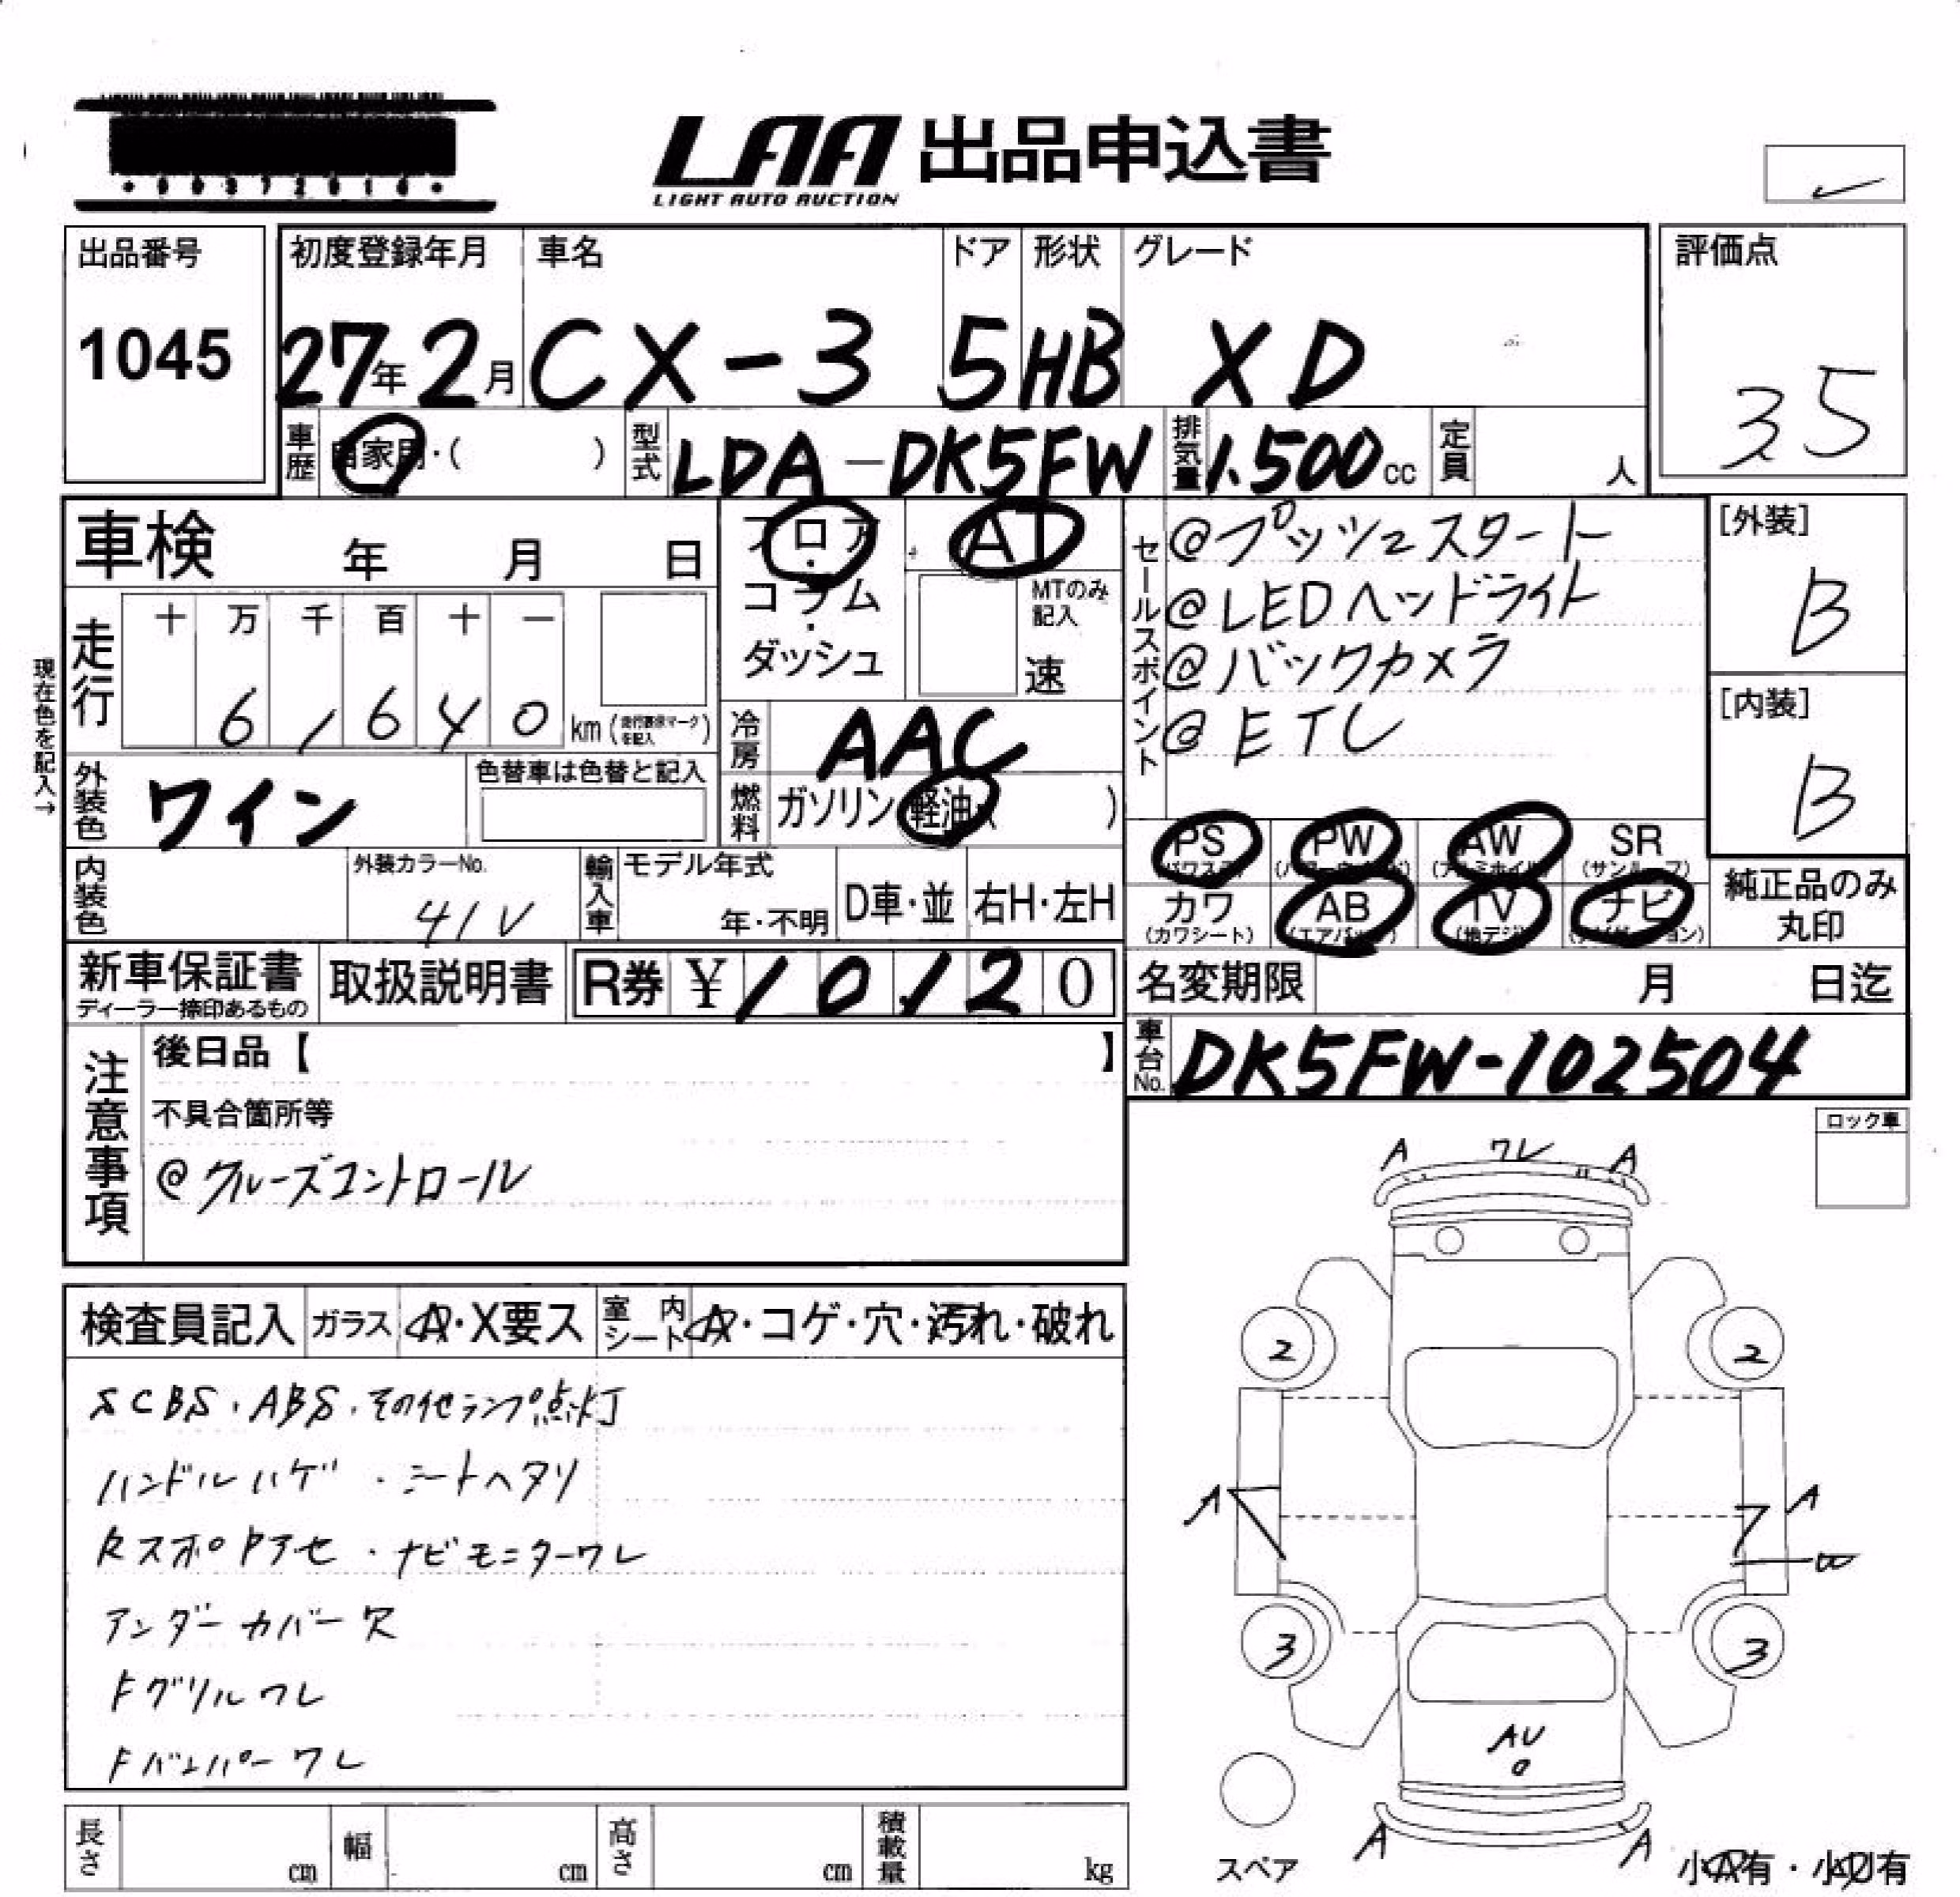 LAA 出品申込書
LIGHT AUTO AUCTION
出品番号
1045
初度登録年月
27年2月
車名
CX-3
ドア
5
形状
HB
グレード
XD
評価点
3.5
車歴
自家用・( )
型式
LDA-DK5FW
排気量
1.500cc
定員
人
車検 年 月 日
フロア・コラム・ダッシュ
AT
MTのみ記入
速
セールスポイント
@プッシュスタート
@LEDヘッドライト
@バックカメラ
@ETC
[外装]
B
[内装]
B
現在色を記入→
走行
十 万 千 百 十 一
6 1 6 4 0 km
冷房
AAC
外装色
ワイン
色替車は色替と記入
燃料
ガソリン 軽油 ( )
PS
(パワステ)
PW
AW
(アルミホイル)
SR
(サンルーフ)
カワ
(カワシート)
AB
(エアバッグ)
TV
(地デジ)
ナビ
純正品のみ
丸印
内装色
外装カラーNo.
41V
輸入車
モデル年式
年・不明
D車・並
右H・左H
新車保証書
ディーラー捺印あるもの
取扱説明書
R券 ¥ 10120
名変期限 月 日迄
車台No.
DK5FW-102504
注意事項
後日品【 】
不具合箇所等
@クルーズコントロール
ロック車
検査員記入
ガラス
A・X要ス
室内シート
A・コゲ・穴・汚れ・破れ
SCBS・ABS・その他ランプ点灯
ハンドルハゲ・シートヘタリ
RスポPアセ・ナビモニターワレ
アンダーカバー欠
Fグリルワレ
Fバンパーワレ
A ワレ A
2 2
A A
3 3
AU
A A
スペア
小A有・小U有
長さ cm
幅 cm
高さ cm
積載量 kg